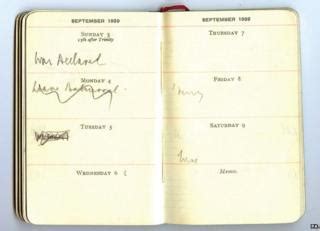 SEPTEMBER 1939
SUNDAY 3
13th after Trinity
War declared
MONDAY 4
TUESDAY 5
WEDNESDAY 6
SEPTEMBER 1939
THURSDAY 7
FRIDAY 8
SATURDAY 9
Memo.
PA